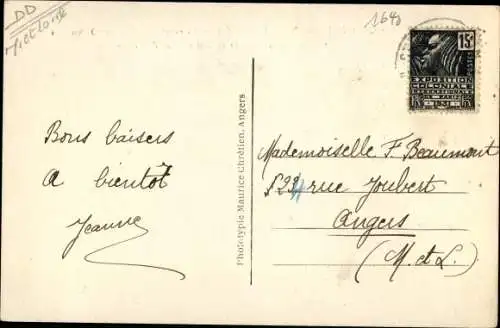 DD
1640
15c
POSTES
EXPOSITION
COLONIALE
INTERNATIONALE
PARIS
1931
Bons baisers
A bientôt
Jeanne
Phototypie Maurice Chrétien, Angers
Mademoiselle F. Beaumont
rue Joubert
Angers
(M. et L.)